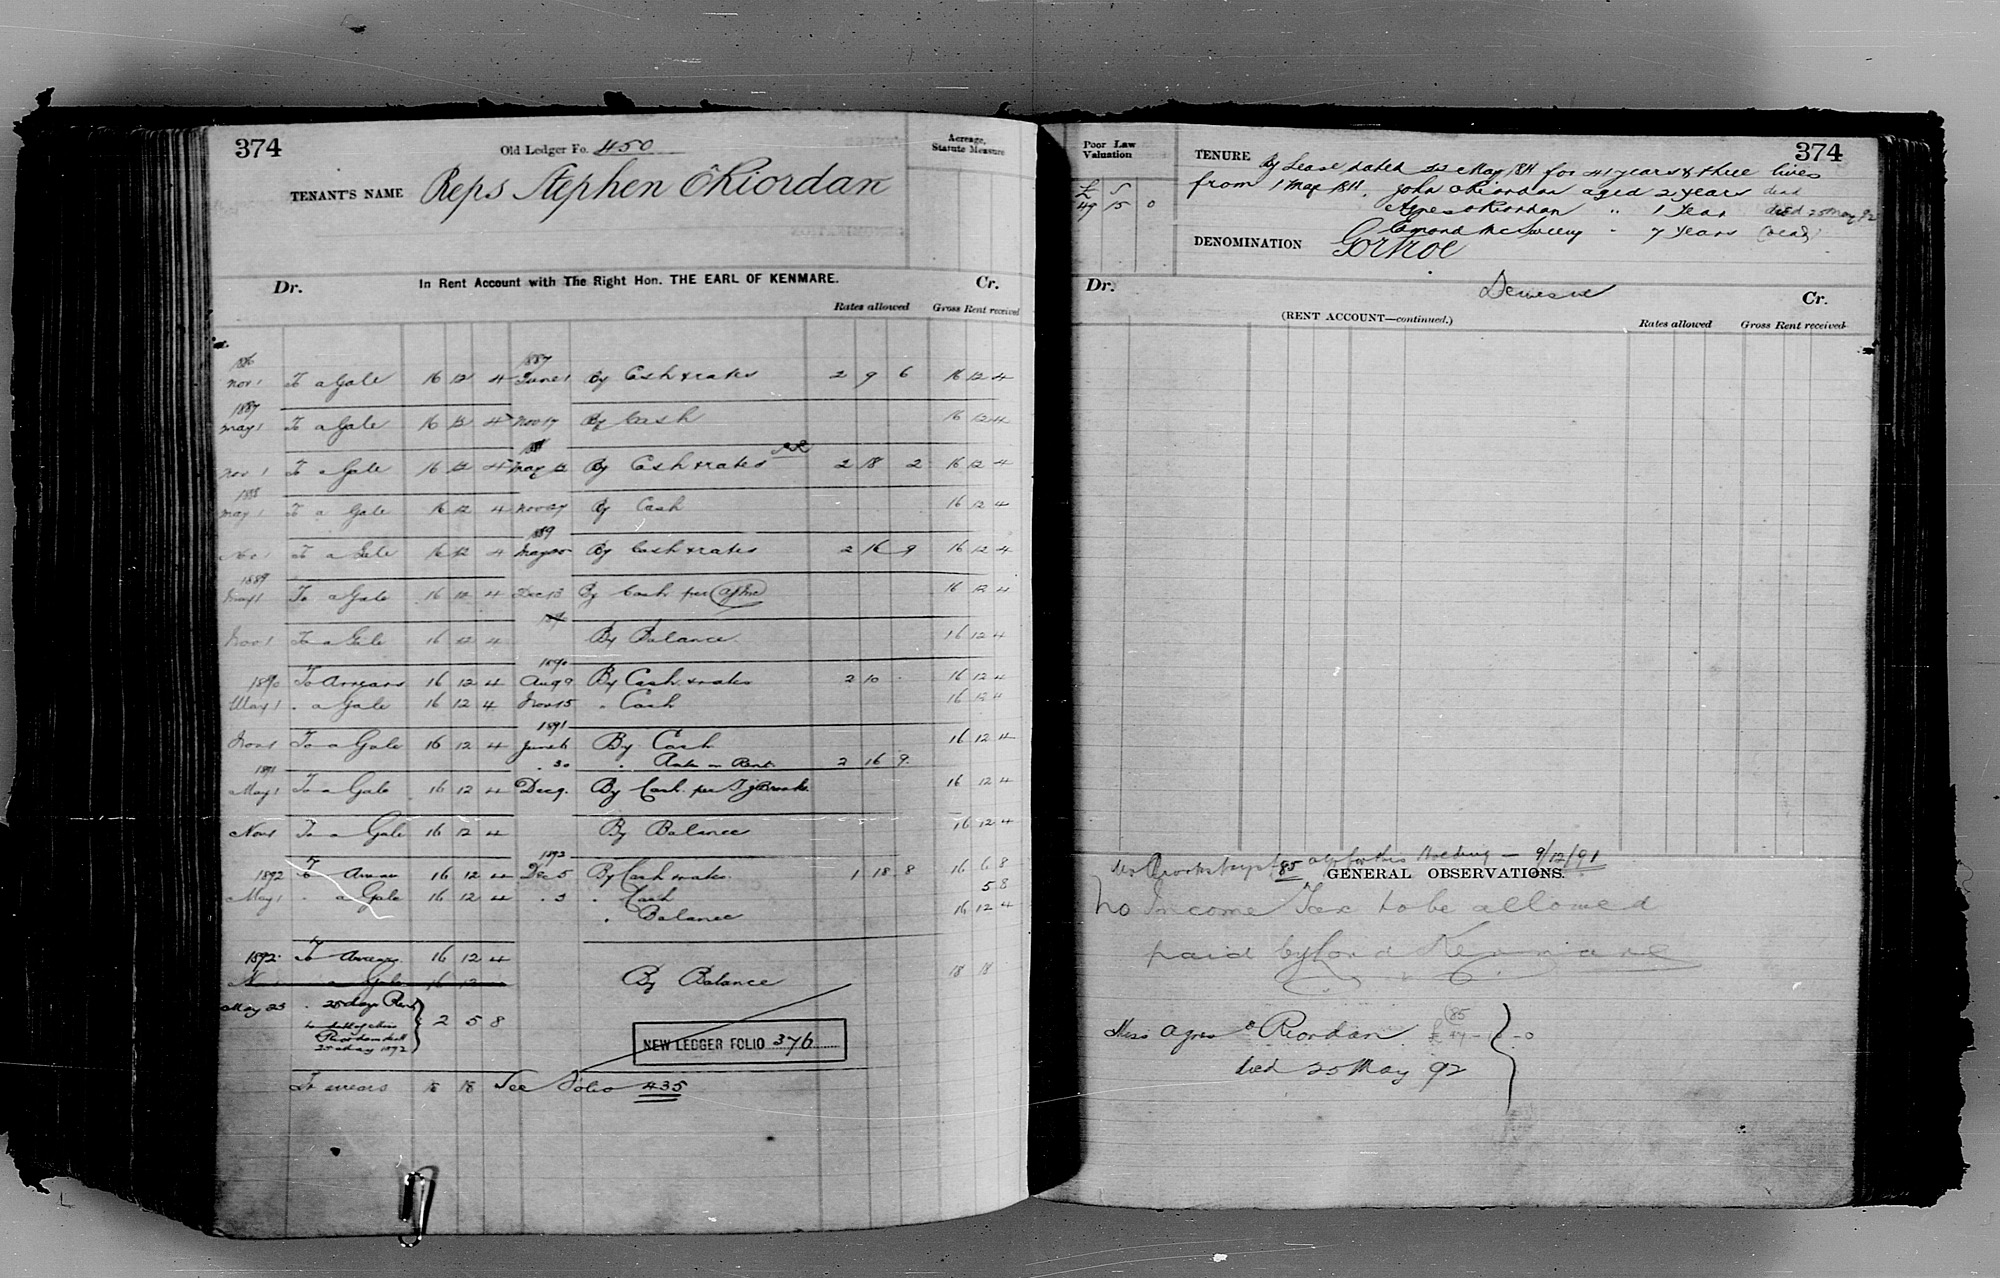 374
Old Ledger Fo. 450
Acreage, Statute Measure
TENANT'S NAME Reps Stephen O'Riordan
Dr. In Rent Account with The Right Hon. THE EARL OF KENMARE. Cr.
Rates allowed Gross Rent received
1886 1887
Nov 1 To a Gale 16 12 4 June 1 By Cash & rates 2 9 6 16 12 4
1887
May 1 To a Gale 16 12 4 Nov 17 By Cash 16 12 4
Nov 1 To a Gale 16 12 4 May 12 By Cash & rates 2 18 2 16 12 4
1888
May 1 To a Gale 16 12 4 Nov 27 By Cash 16 12 4
1889
Nov 1 To a Gale 16 12 4 May 25 By Cash & rates 2 16 9 16 12 4
1889
May 1 To a Gale 16 12 4 Dec 13 By Cash per 16 12 4
Nov 1 To a Gale 16 12 4 By Balance 16 12 4
1890
1890 To Arrears 16 12 4 Aug 9 By Cash & rates 2 10 - 16 12 4
May 1 " a Gale 16 12 4 Nov 15 " Cash 16 12 4
1891
Nov 1 To a Gale 16 12 4 June 6 By Cash 16 12 4
" 30 " Rates on Rent 2 16 9
1891
May 1 To a Gale 16 12 4 Dec 9 By Cash per 16 12 4
Nov 1 To a Gale 16 12 4 By Balance 16 12 4
1892
1892 To Arrears 16 12 4 Dec 5 By Cash & rates 1 18 8 16 6 8
May 1 " a Gale 16 12 4 " 3 " Cash 5 8
" Balance 16 12 4
1892 To Arrears 16 12 4
N a Gale 16 12
By Balance 18 18
May 25 " 25 days Rent
to death of Miss
Riordan died
25 May 1892
2 5 8
NEW LEDGER FOLIO 376
To arrears 18 18 See Folio 435
374
Poor Law Valuation
£ s
49 15 0
TENURE By Lease dated 22 May 1811 for 41 years & three lives
from 1 May 1811. John O'Riordan aged 2 years dead
Agnes O'Riordan " 1 Year died 25 May 92
McSweeny " 7 Years (dead)
DENOMINATION Gortroe
Demesne
Dr. Cr.
(RENT ACCOUNT—continued.)
Rates allowed Gross Rent received
£85 for this Holding — 9/12/91
GENERAL OBSERVATIONS.
No Income Tax to be allowed
paid by Lord Kenmare
Miss Agnes O'Riordan
died 25 May 92